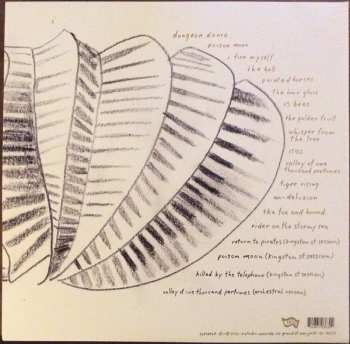 dungeon dance
poison moon
i fan myself
the bell
painted horses
the hour glass
13 bees
the golden fruit
whisper from
the tree
1521
valley of one
thousand perfumes
tiger rising
the fox and hound
rider on the stormy sea
return to pirates (kingston st session)
poison moon (kingston st session)
killed by the telephone (kingston st session)
valley of one thousand perfumes (orchestral version)